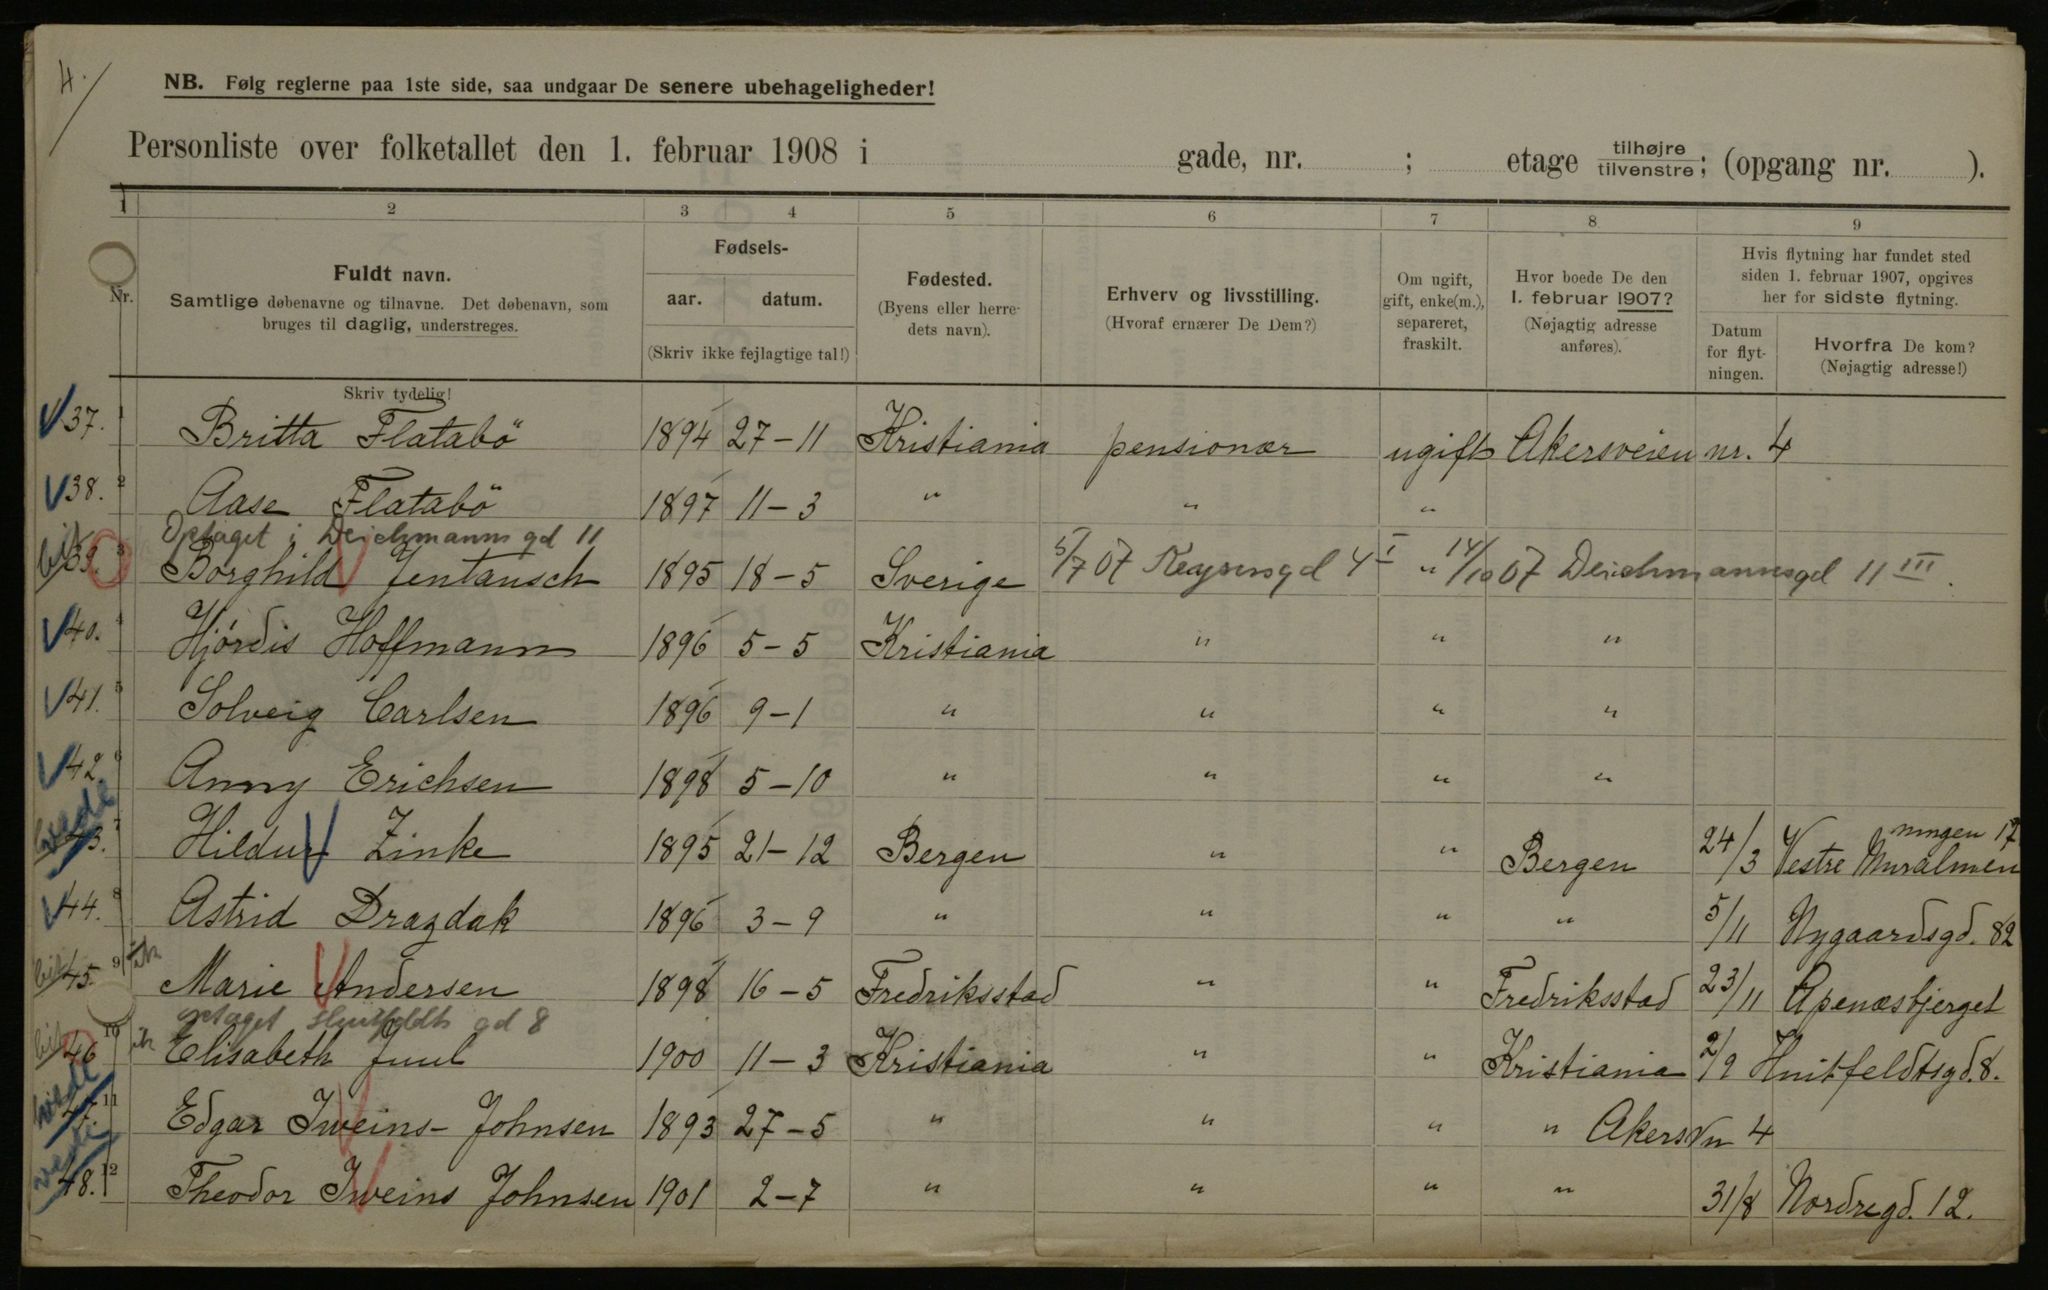 4.
NB. Følg reglerne paa 1ste side, saa undgaar De senere ubehageligheder!
Personliste over folketallet den 1. februar 1908 i gade, nr. ; etage tilhøjre tilvenstre; (opgang nr. ).
1 2 3 4 5 6 7 8 9
Nr.
Fuldt navn.
Samtlige døbenavne og tilnavne. Det døbenavn, som
bruges til daglig, understreges.
Skriv tydelig!
Fødsels-
aar. datum.
(Skriv ikke fejlagtige tal!)
Fødested.
(Byens eller herre-
dets navn).
Erhverv og livsstilling.
(Hvoraf ernærer De Dem?)
Om ugift,
gift, enke(m.),
separeret,
fraskilt.
Hvor boede De den
1. februar 1907?
(Nøjagtig adresse
anføres).
Hvis flytning har fundet sted
siden 1. februar 1907, opgives
her for sidste flytning.
Datum
for flyt-
ningen.
Hvorfra De kom?
(Nøjagtig adresse!)
37. 1 Britta Flatabö 1894 27-11 Kristiania pensionær ugift Akersveien nr. 4
38. 2 Aase Flatabö 1897 11-3 " " "
Optaget i Deichmanns gd 11
39. 3 Borghild Jentausch 1895 18-5 Sverige 5/7 07 Keysersgd 4 I " 14/10 07 Deichmannsgd 11 III.
40. 4 Hjördis Hoffmann 1896 5-5 Kristiania " " "
41. 5 Solveig Carlsen 1896 9-1 " " " "
42. 6 Anny Erichsen 1898 5-10 " " " "
43. 7 Hildur Zinke 1895 21-12 Bergen " " Bergen 24/3 Vestre Muralmenningen 17
44. 8 Astrid Drazdak 1896 3-9 " " " " 5/11 Nygaardsgd. 82
45. 9 Marie Andersen 1898 16-5 Fredriksstad " " Fredriksstad 23/11 Apenæsbjerget
optaget Huitfeldts gd 8
46 10 Elisabeth Juul 1900 11-3 Kristiania " " Kristiania 2/9 Huitfeldtsgd. 8.
47. 11 Edgar Iweins-Johnsen 1893 27-5 " " " " Akersvn 4
48. 12 Theodor Iweins Johnsen 1901 2-7 " " " " 31/8 Nordregd. 12.